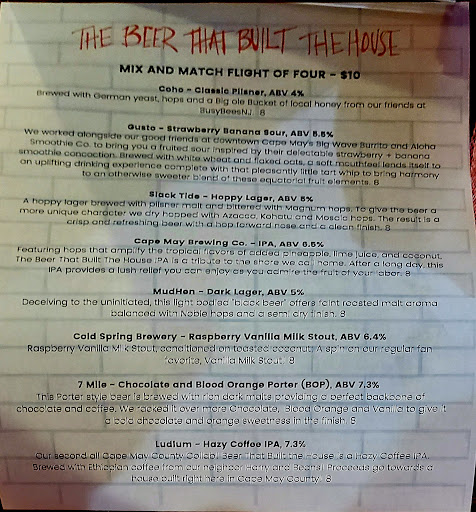 THE BEER THAT BUILT THE HOUSE
MIX AND MATCH FLIGHT OF FOUR - $10
Coho - Classic Pilsner, ABV 4%
Brewed with German yeast, hops and a Big ole Bucket of local honey from our friends at
BusyBeesNJ. 8
Gusto - Strawberry Banana Sour, ABV 5.5%
We worked alongside our good friends at downtown Cape May's Big Wave Burrito and Aloha
Smoothie Co. to bring you a fruited sour inspired by their delectable strawberry + banana
smoothie concoction. Brewed with white wheat and flaked oats, a soft mouthfeel lends itself to
an uplifting drinking experience complete with that pleasantly little tart whip to bring harmony
to an otherwise sweeter blend of these equatorial fruit elements. 8
Slack Tide - Hoppy Lager, ABV 5%
A hoppy lager brewed with pilsner malt and bittered with Magnum hops. To give the beer a
more unique character we dry hopped with Azacca, Kohatu and Mosaic hops. The result is a
crisp and refreshing beer with a hop forward nose and a clean finish. 8
Cape May Brewing Co. - IPA, ABV 6.5%
Featuring hops that amplify the tropical flavors of added pineapple, lime juice, and coconut,
The Beer That Built The House IPA is a tribute to the shore we call home. After a long day, this
IPA provides a lush relief you can enjoy as you admire the fruit of your labor. 8
MudHen - Dark Lager, ABV 5%
Deceiving to the uninitiated, this light bodied "black beer" offers faint roasted malt aroma
balanced with Noble hops and a semi dry finish. 8
Cold Spring Brewery - Raspberry Vanilla Milk Stout, ABV 6.4%
Raspberry Vanilla Milk Stout, conditioned on toasted coconut. A spin on our regular fan
favorite, Vanilla Milk Stout. 8
7 Mile - Chocolate and Blood Orange Porter (BOP), ABV 7.3%
This Porter style beer is brewed with rich dark malts providing a perfect backbone of
chocolate and coffee. We racked it over more Chocolate, Blood Orange and Vanilla to give it
a bold chocolate and orange sweetness in the finish. 8
Ludlum - Hazy Coffee IPA, 7.3%
Our second all Cape May County Collab! Beer That Built the House is a Hazy Coffee IPA.
Brewed with Ethiopian coffee from our neighbor Harry and Beans! Proceeds go towards a
house built right here in Cape May County! 8